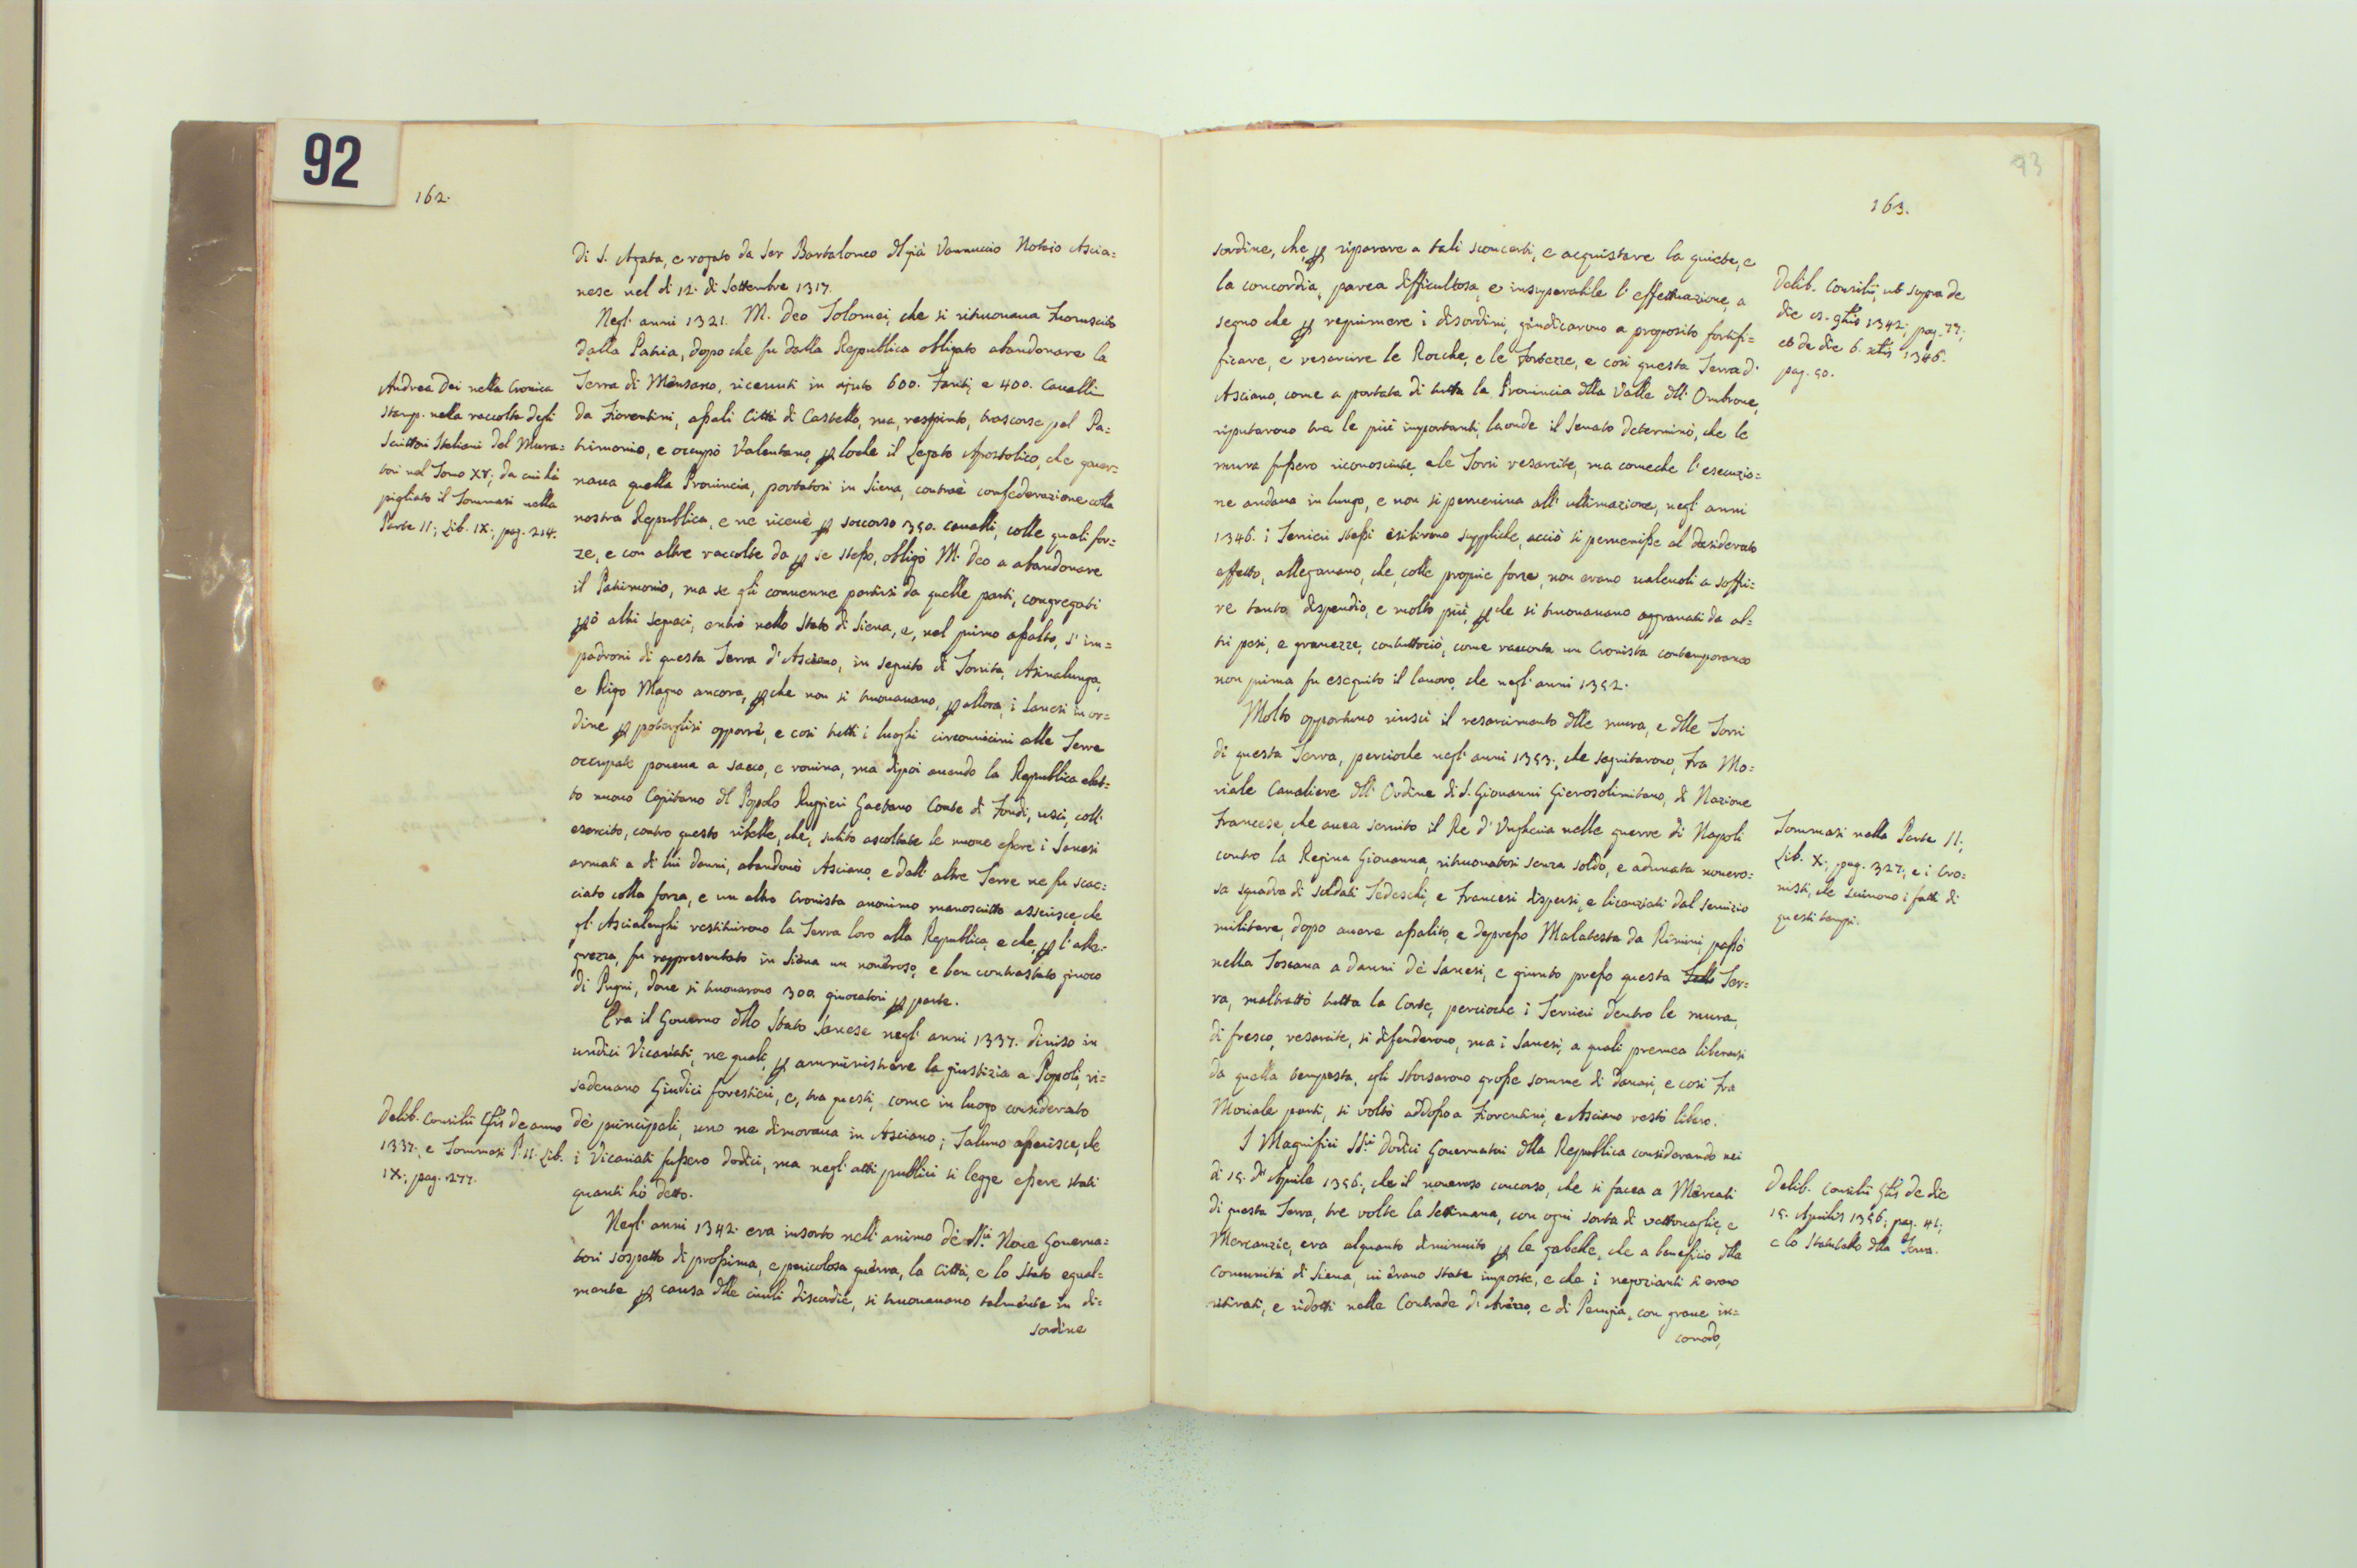 92
162.
di S. Agata, e rogato da Ser Bartalomeo dl già Vannuccio Notaio Ascia=
nese nel dì 12. di Settembre 1317.
Negl' anni 1321. M. Deo Tolomei, che si ritruovava Fioruscito
dalla Patria, dopo che fu dalla Republica obligato abandonare la
Terra di Mensano, ricevuti in ajuto 600. Fanti, e 400. Cavalli
da Fiorentini, assalì Città di Castello, ma, respinto, trascorse pel Pa=
trimonio, e occupò Valentano, p loche il Legato Apostolico, che gover=
nava quella Provincia, portatosi in Siena, contraè confederazione colla
nostra Republica, e ne ricevè p soccorso 350. cavalli, colle quali for=
ze, e con altre raccolte da p se stesso, obligò M. Deo a abandonare
il Patrimonio, ma se gli convenne partirsi da quelle parti, congregati
pò altri seguaci, entrò nello Stato di Siena, e, nel primo assalto, s' im=
padronì di questa Terra d' Asciano, in seguito di Torrita, Asinalunga,
e Rigo Magno ancora, p che non si truovavano, p allora, i Sanesi in or=
dine p poterglisi opporre, e così tutti i luoghi circonvicini alle Terre
occupate poneva a sacco, e rovina, ma dipoi avendo la Republica elet=
to nuovo Capitano dl Popolo Ruggieri Gaetano Conte di Fondi, uscì, coll'
esercito, contro questo ribelle, che, subito ascoltate le nuove essere i Sanesi
armati a di lui danni, abandonò Asciano, e dall' altre Terre ne fu scac=
ciato colla forza, e un altro Cronista anonimo manoscritto asserisce che
gl' Ascialenghi restituirono la Terra loro alla Republica, e che, p l' alle=
grezza, fu rappresentato in Siena un noneroso, e ben contrastato giuoco
di Pugni, dove si truovarono 300. giuocatori p parte.
Era il Governo dllo Stato Sanese negl' anni 1337. diviso in
undici Vicariati, ne quali, p amministrare la giustizia a Popoli, ri=
sedevano Giudici forestieri, e, tra questi, come in luogo considerato
dè principali, uno ne dimorava in Asciano; Taluno asserisce, che
i Vicariati fussero dodici, ma negl' atti publici si legge essere stati
quanti hò detto.
Negl' anni 1342. era insorto nell' animo dè SS.ri Nove Governa=
tori sospetto di prossima, e pericolosa guerra, la Città, e lo Stato egual=
mente p causa dlle civili discordie, si truovavano talmente in di=
sordine
Andrea Dei nella Cronica
stamp. nella raccolta degli
Scrittori Italiani del Mura=
tori nel Tomo XV, da cui hà
pigliato il Tommasi nella
Parte II; Lib. IX; pag. 214.
Delib. Consilii Gñlis de anno
1337. e Tommasi P. II. Lib.
IX; pag. 277.
93
163.
sordine, che, p riparare a tali sconcerti, e acquistare la quiete, e
la concordia, parea difficultosa, e insuperabile l' effettuazione, a
segno che p reprimere i disordini, giudicarono a proposito fortifi=
ficare, e resarcire le Rocche, e le Fortezze, e così questa Terra d'
Asciano, come a portata di tutta la Provincia dlla Valle dll' Ombrone,
riputarono tra le più importanti, laonde il Senato determinò, che le
mura fussero riconosciute, e le Torri resarcite, ma comeche l' esecuzio=
ne andava in lungo, e non si perveniva all' ultimazione, negl' anni
1346. i Terrieri stessi esibirono suppliche, acciò si pervenisse al desiderato
effetto, allegavano, che, colle proprie forze, non erano valevoli a soffri=
re tanto dispendio, e molto più, p che si truovavano aggravati da al=
tri pesi, e gravezze, contuttociò, come racconta un Cronista contemporaneo
non prima fu eseguito il lavoro, che negl' anni 1352.
Molto opportuno riuscì il resarcimento dlle mura, e dlle Torri
di questa Terra, perciochè negl' anni 1353., che seguitarono, Fra Mo=
riale Cavaliere dll' Ordine di S. Giovanni Gierosolimitano, di Nazione
Francese, che avea servito il Re d' Ungheria nelle guerre di Napoli
contro la Regina Giovanna, ritruovatosi senza soldo, e adunata nonero=
sa squadra di soldati Tedeschi, e Francesi dispersi, e licenziati dal servizio
militare, dopo avere assalito, e depresso Malatesta da Rimini, passò
nella Toscana a danni dè Sanesi, e giunto presso questa Ter=
ra, maltrattò tutta la Corte, perciochè i Terrieri dentro le mura,
di fresco, resarcite, si difenderono, ma i Sanesi, a quali premea liberarsi
da quella tempesta, gli sborsarono grosse somme di danari, e così Fra
Moriale partì, si voltò addosso a Fiorentini, e Asciano restò libero.
I Magnifici SS.ri Dodici Governatori dlla Republica considerando nei
dì 15. d' Aprile 1356., che il noneroso concorso, che si facea a Mercati
di questa Terra, tre volte la Settimana, con ogni sorta di vettovaglie, e
Mercanzie, era alquanto diminuito p le gabelle, che a beneficio dlla
Comunità di Siena, vi erano state imposte, e che i negozianti si erano
ritirati, e ridotti nelle Contrade di Arezzo, e di Perugia, con grave in=
comodo,
Delib. Consilii, ut supra de
die 15. 9bris 1342; pag. 77;
et de die 6. xbris 1346.
pag. 50.
Tommasi nella Parte II;
Lib. X; pag. 327, e i Cro=
nisti, che scrivono i fatti di
questi tempi.
Delib. Consilii Gñlis de die
15. Aprilis 1356; pag. 41;
e lo Statutello dlla Terra.